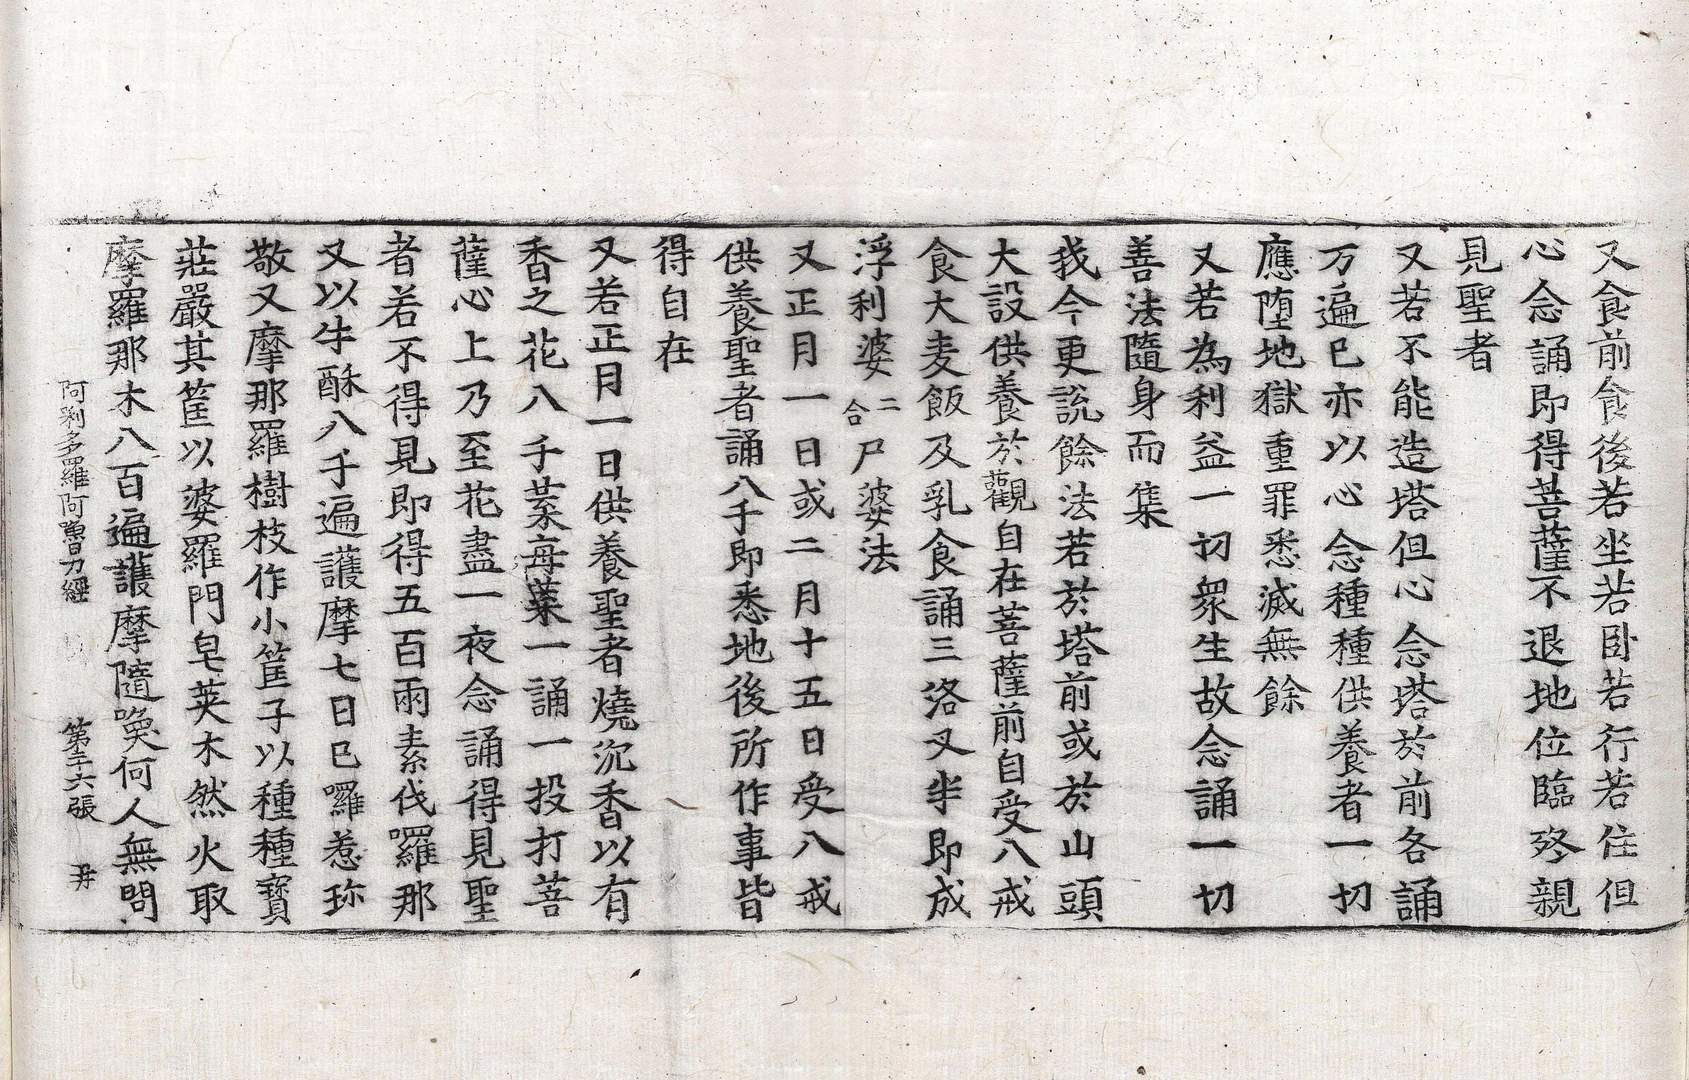 又食前食後若坐若卧若行若住但
心念誦即得菩薩不退地位臨終親
見聖者
又若不能造塔但心念塔於前各誦
万遍已亦以心念種種供養者一切
應墮地獄重罪悉滅無餘
又若為利益一切衆生故念誦一切
善法隨身而集
我今更說餘法若於塔前或於山頭
大設供養於觀自在菩薩前自受八戒
食大麦飯及乳食誦三洛叉半即成
浮利婆二合尸婆法
又正月一日或二月十五日受八戒
供養聖者誦八千即悉地後所作事皆
得自在
又若正月一日供養聖者燒沉香以有
香之花八千葉每葉一誦一投打菩
薩心上乃至花盡一夜念誦得見聖
者若不得見即得五百兩素伐囉那
又以牛酥八千遍護摩七日已囉惹珎
敬又摩那羅樹枝作小筐子以種種寶
莊嚴其筐以婆羅門皂莢木然火取
摩羅那木八百遍護摩隨喚何人無問
阿唎多羅阿嚕力經 第二十六張 丼